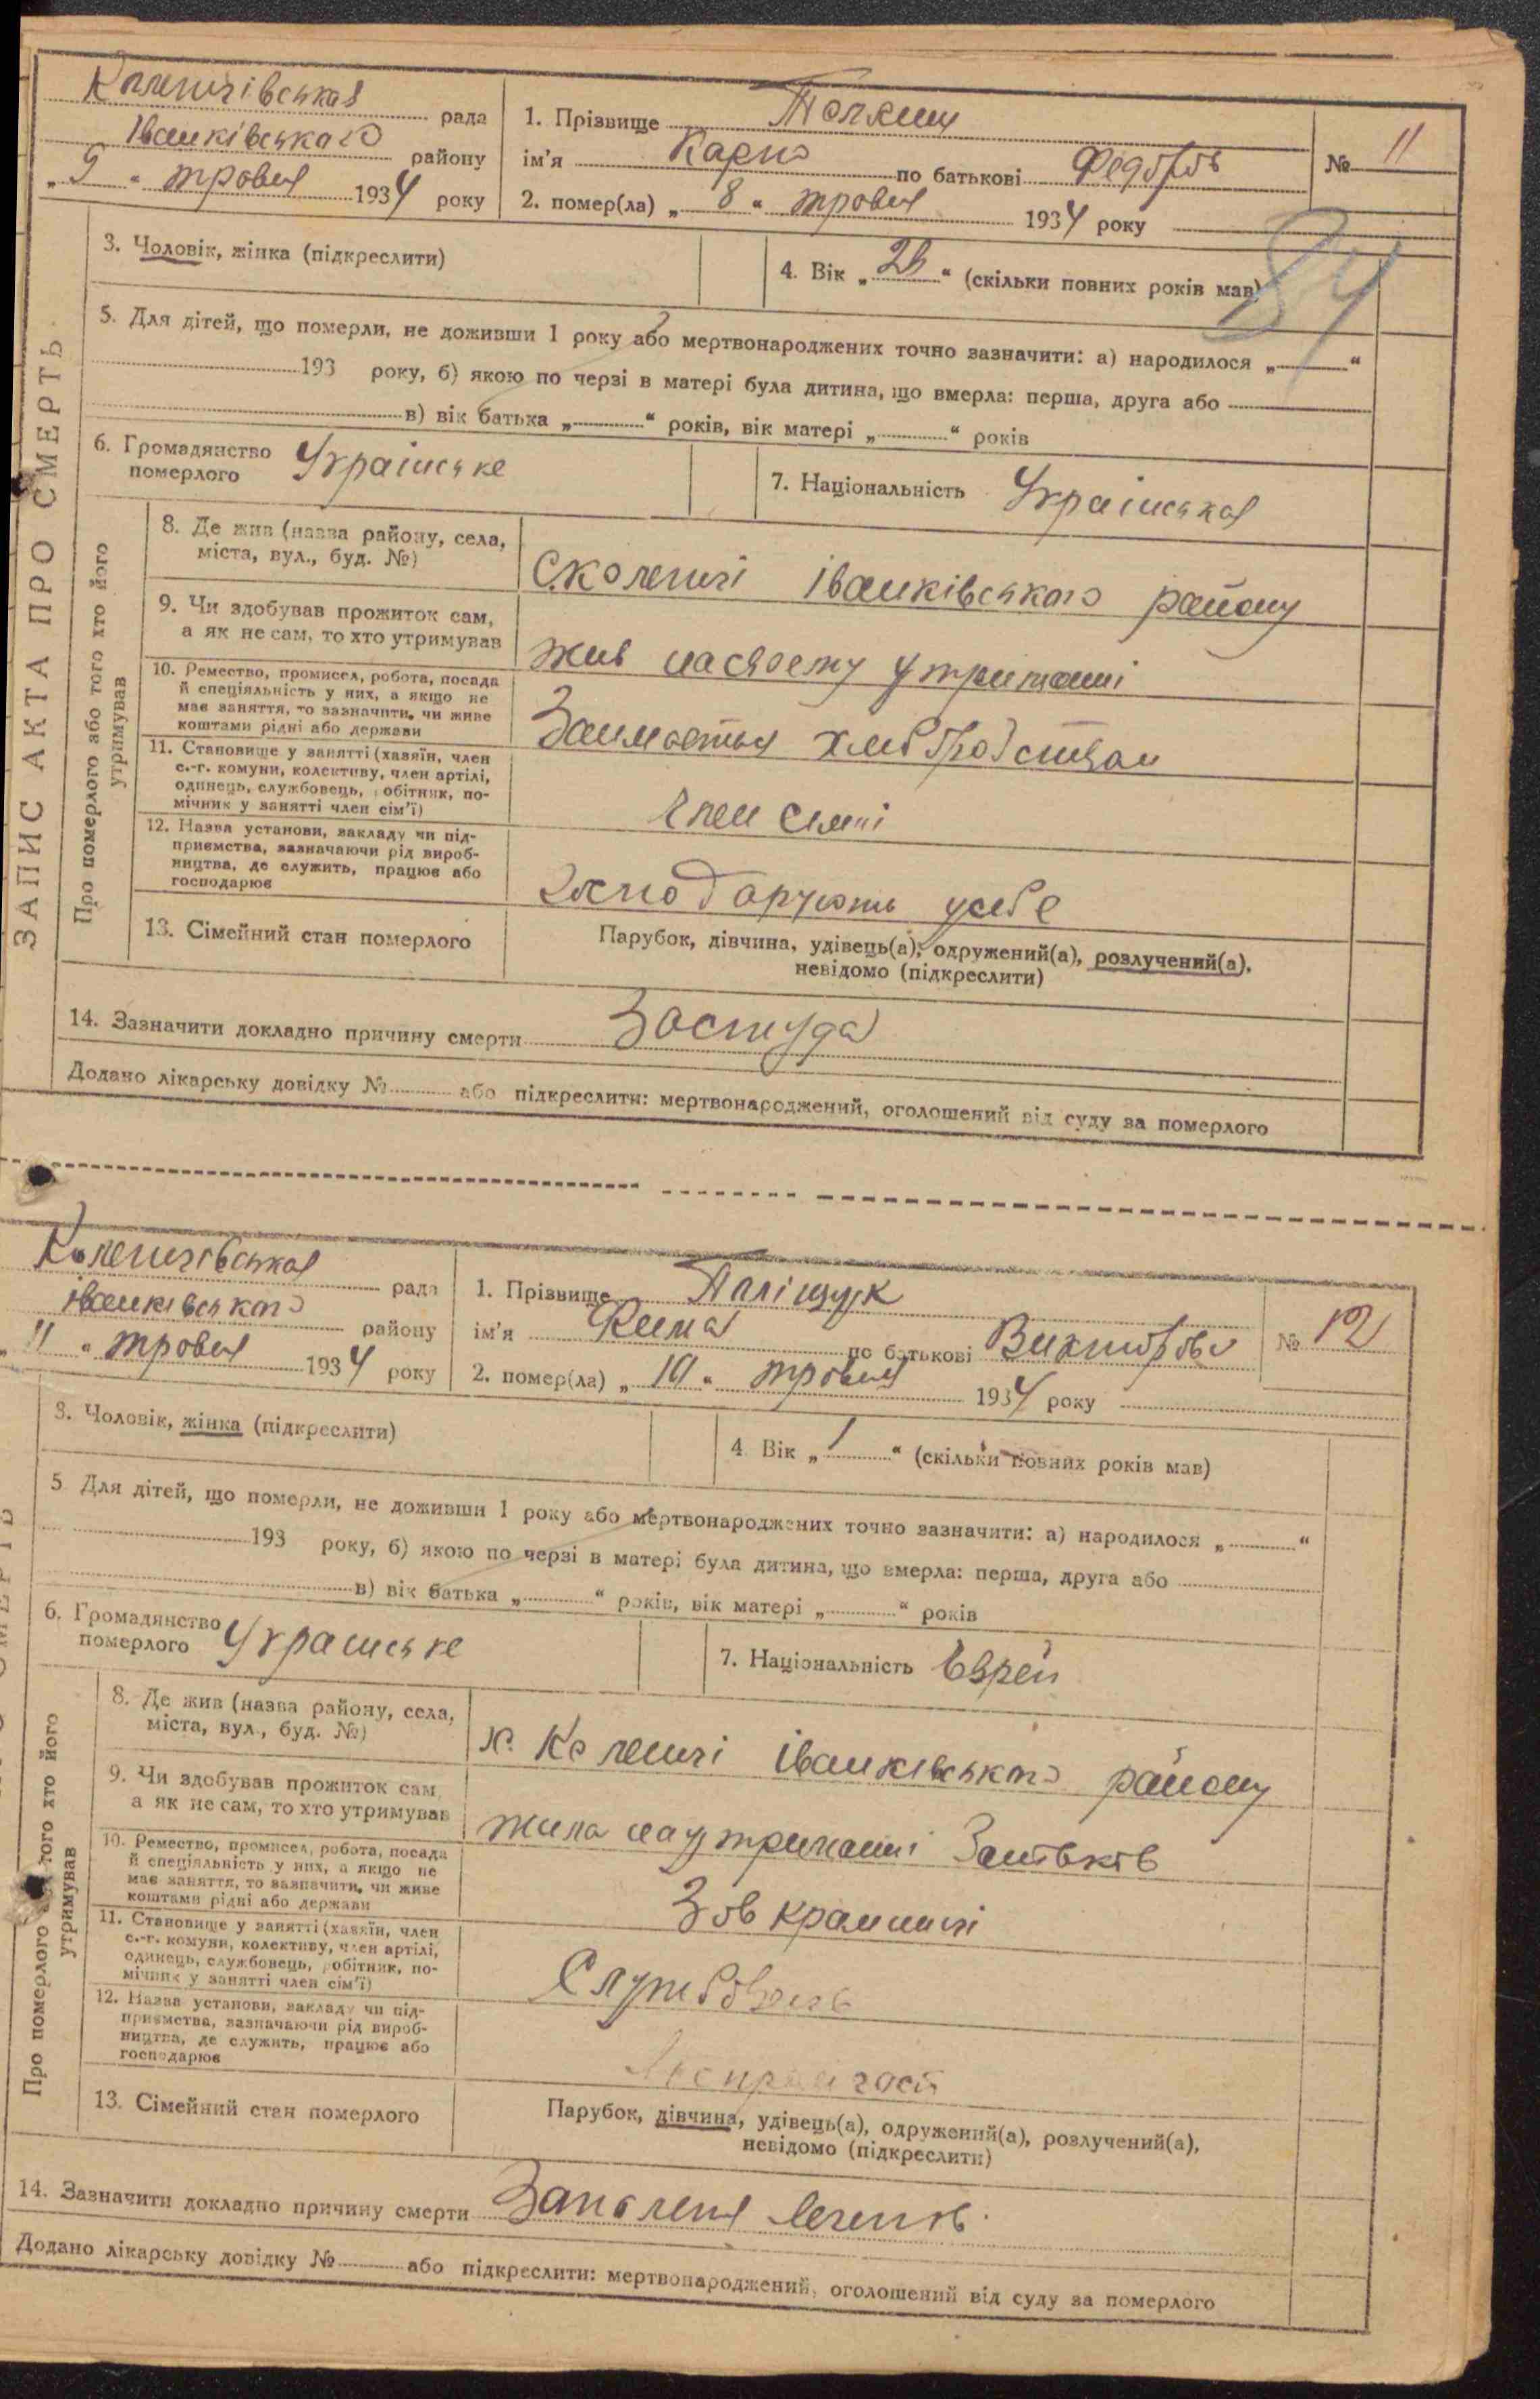 ЗАПИС АКТА ПРО СМЕРТЬ
Коленцівська рада
Іванківського району
„9“ травня 1934 року
1. Прізвище
ім'я Карпо по батькові Федорів
№ 11
2. помер(ла) „8“ травня 1934 року
84
3. Чоловік, жінка (підкреслити)
4. Вік „28“ (скільки повних років мав)
5. Для дітей, що померли, не доживши 1 року або мертвонароджених точно зазначити: а) народилося „ “
193 року, б) якою по черзі в матері була дитина, що вмерла: перша, друга або
в) вік батька „ “ років, вік матері „ “ років
6. Громадянство
померлого Українське
7. Національність Українська
Про померлого або того хто його
утримував
8. Де жив (назва району, села,
міста, вул., буд. №)
С. Коленці Іванківського району
9. Чи здобував прожиток сам,
а як не сам, то хто утримував
жив на своему утриманні
10. Ремество, промисел, робота, посада
й спеціяльність у них, а якщо не
має заняття, то зазначити, чи живе
коштами рідні або держави
Займается хліборобством
11. Становище у занятті (хазяїн, член
с.-г. комуни, колективу, член артілі,
одинець, службовець, робітник, по-
мічник у занятті член сім'ї)
Член сімї
12. Назва установи, закладу чи під-
приємства, зазначаючи рід вироб-
ництва, де служить, працює або
господарює
Господарують у себе
13. Сімейний стан померлого
Парубок, дівчина, удівець(а), одружений(а), розлучений(а),
невідомо (підкреслити)
14. Зазначити докладно причину смерти Застуда
Додано лікарську довідку № або підкреслити: мертвонароджений, оголошений від суду за померлого
Коленцівська рада
Іванківського району
„11“ травня 1934 року
1. Прізвище Паліщук
ім'я Рима по батькові Викторова
№ 12
2. помер(ла) „10“ травня 1934 року
3. Чоловік, жінка (підкреслити)
4. Вік „1“ (скільки повних років мав)
5. Для дітей, що померли, не доживши 1 року або мертвонароджених точно зазначити: а) народилося „ “
193 року, б) якою по черзі в матері була дитина, що вмерла: перша, друга або
в) вік батька „ “ років, вік матері „ “ років
6. Громадянство
померлого Українське
7. Національність Єврей
Про померлого того хто його
утримував
8. Де жив (назва району, села,
міста, вул., буд. №)
Коленці Іванківського району
9. Чи здобував прожиток сам,
а як не сам, то хто утримував
жила на утриманні батьків
10. Ремество, промисел, робота, посада
й спеціяльність у них, а якщо не
має заняття, то зазначити, чи живе
коштами рідні або держави
Зав крамниці
11. Становище у занятті (хазяїн, член
с.-г. комуни, колективу, член артілі,
одинець, службовець, робітник, по-
мічник у занятті член сім'ї)
Службовець
12. Назва установи, закладу чи під-
приємства, зазначаючи рід вироб-
ництва, де служить, працює або
господарює
13. Сімейний стан померлого
Парубок, дівчина, удівець(а), одружений(а), розлучений(а),
невідомо (підкреслити)
14. Зазначити докладно причину смерти Запаленя легенів
Додано лікарську довідку № або підкреслити: мертвонароджений, оголошений від суду за померлого